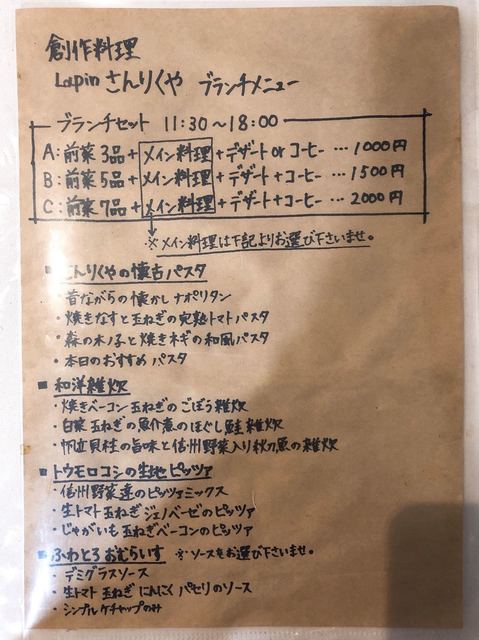 創作料理
Lapin さんりくや ブランチメニュー
ブランチセット 11:30〜18:00
A:前菜3品+メイン料理+デザート or コーヒー … 1000円
B:前菜5品+メイン料理+デザート+コーヒー … 1500円
C:前菜7品+メイン料理+デザート+コーヒー … 2000円
※メイン料理は下記よりお選び下さいませ。
■ さんりくやの懐古パスタ
・昔ながらの懐かしナポリタン
・焼きなすと玉ねぎの完熟トマトパスタ
・森の木ノ子と焼きネギの和風パスタ
・本日のおすすめパスタ
■ 和洋雑炊
・焼きベーコン玉ねぎのごぼう雑炊
・白菜玉ねぎの魚介煮のほぐし鮭雑炊
・帆立貝柱の旨味と信州野菜入り秋刀魚の雑炊
■ トウモロコシの生地ピッツァ
・信州野菜達のピッツァミックス
・生トマト玉ねぎジェノベーゼのピッツァ
・じゃがいも玉ねぎベーコンのピッツァ
■ ふわとろおむらいす ※ソースをお選び下さいませ。
・デミグラスソース
・生トマト玉ねぎにんにくパセリのソース
・シンプルケチャップのみ